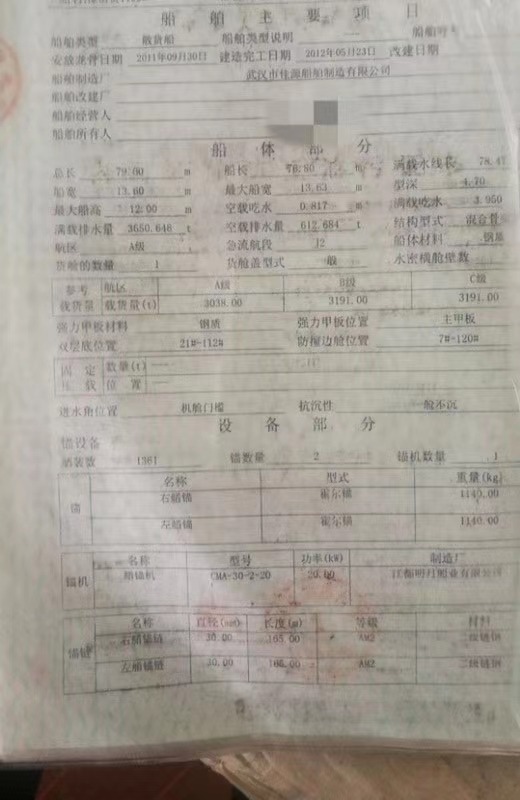 船 舶 主 要 项 目
船舶类型 散货船 船舶类型说明 船舶呼号
安放龙骨日期 2011年09月30日 建造完工日期 2012年05月23日 改建日期
船舶制造厂 武汉市佳源船舶制造有限公司
船舶改建厂
船舶经营人
船舶所有人
船 体 部 分
总长 79.80 m 船长 76.80 m 满载水线长 78.47
船宽 13.60 m 最大船宽 13.63 m 型深 4.70
最大船高 12.00 m 空载吃水 0.817 m 满载吃水 3.950
满载排水量 3650.648 t 空载排水量 612.684 t 结构型式 混合骨
航区 A级 急流航段 J2 船体材料 钢质
货舱的数量 1 货舱盖型式 一般 水密横舱壁数
参考 航区 A级 B级 C级
载货量 载货量(t) 3038.00 3191.00 3191.00
强力甲板材料 钢质 强力甲板位置 主甲板
双层底位置 21#-112# 防撞边舱位置 7#-120#
固定 数量(t) —
压载 位置 —
进水角位置 机舱门槛 抗沉性 一般不沉
设 备 部 分
锚设备
舾装数 1361 锚数量 2 锚机数量 1
锚 名称 型式 重量(kg)
右艏锚 霍尔锚 1140.00
左艏锚 霍尔锚 1140.00
锚机 名称 型号 功率(kW) 制造厂
艏锚机 CMA-30-2-20 20.00 江都明月船业有限公司
锚链 名称 直径(mm) 长度(m) 等级 材料
右艏锚链 30.00 165.00 AM2 二级链钢
左艏锚链 30.00 165.00 AM2 二级链钢